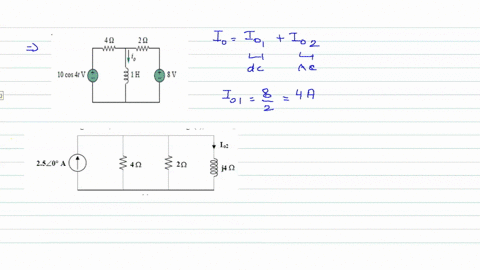 ⇒
4 Ω 2 Ω
10 cos 4t V i₀ 1 H 8 V
I₀ = I₀₁ + I₀₂
dc Ac
I₀₁ = 8/2 = 4A
2.5∠0° A 4 Ω 2 Ω I₀₂ j4 Ω